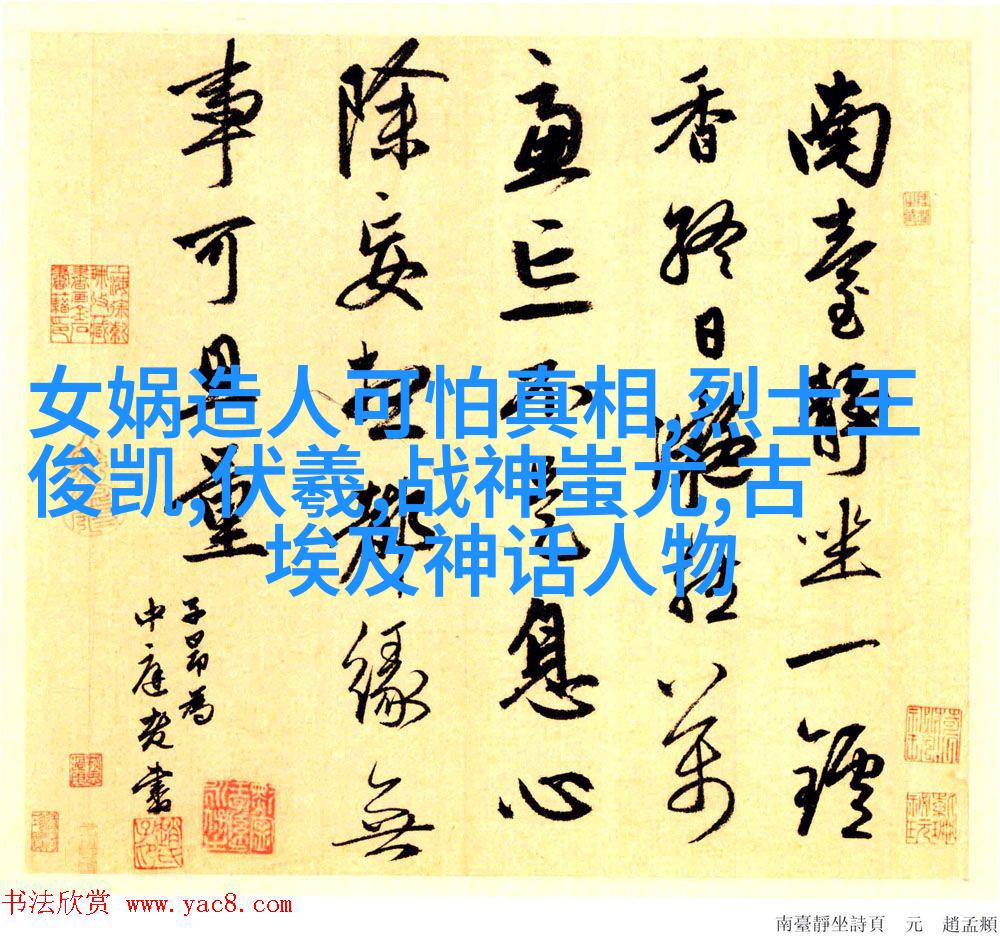 南臺靜坐一鑪
香終日凝然萬
慮亡不是息心
除妄想都緣無
事可思量
子昂為
中庭老書
女娲造人可怕真相,烈士王
俊凯,伏羲,战神蚩尤,古
埃及神话人物
书法欣赏 www.yac8.com
南臺靜坐詩頁 元 趙孟頫